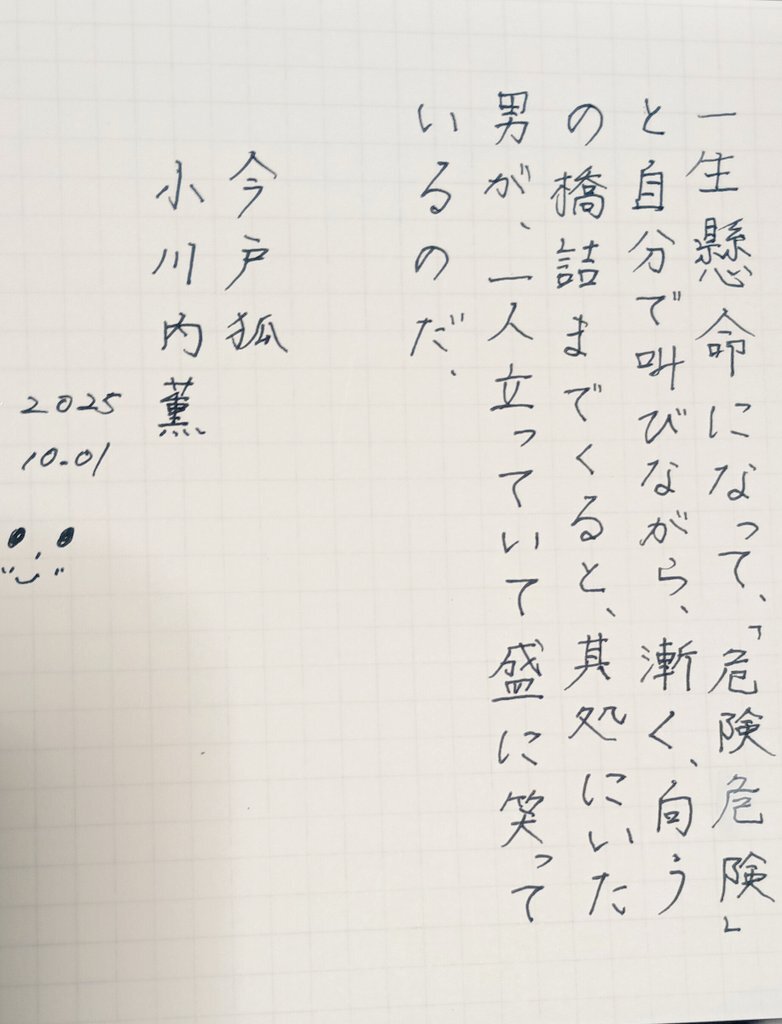 一生懸命になって、「危険危険」
と自分で叫びながら、漸く、向う
の橋詰までくると、其処にいた
男が、一人立っていて盛に笑って
いるのだ.
今戸狐
小川内薫
2025
10.01